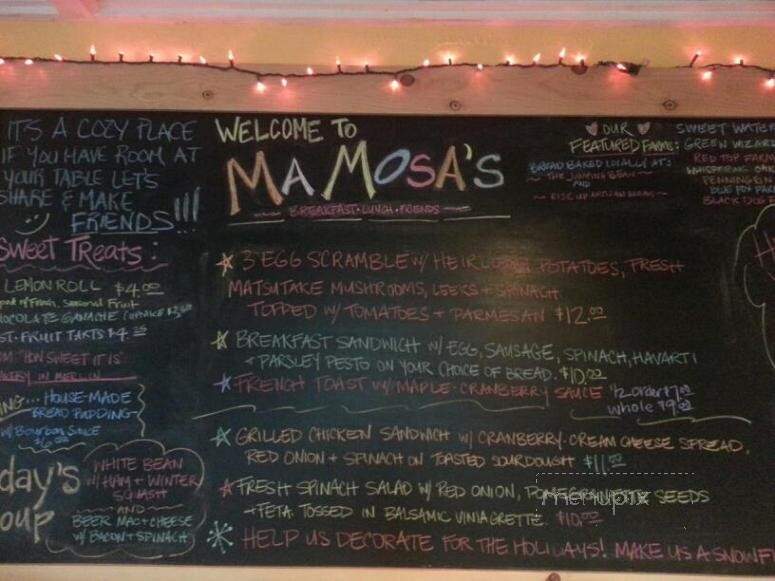 IT'S A COZY PLACE
IF YOU HAVE ROOM AT
YOUR TABLE LET'S
SHARE & MAKE
FRIENDS!!!
SWEET TREATS:
LEMON ROLL $4.00
of Fresh, Seasonal Fruit
CHOCOLATE GANACHE CUPCAKE
FRUIT TARTS $4.
"HOW SWEET IT IS"
BAKERY IN
HOUSE-MADE
BREAD PUDDING
W/ Bourbon Sauce
$6.00
day's
oup
WHITE BEAN
W/ HAM + WINTER
SQUASH
AND
BEER MAC + CHEESE
W/ BACON + SPINACH
WELCOME TO
MA MOSA'S
BREAKFAST · LUNCH · FRIENDS
3 EGG SCRAMBLE W/ HEIRLOOM POTATOES, FRESH
MATSUTAKE MUSHROOMS, LEEKS + SPINACH
TOPPED W/ TOMATOES + PARMESAN $12.00
BREAKFAST SANDWICH W/ EGG, SAUSAGE, SPINACH, HAVARTI
+ PARSLEY PESTO ON YOUR CHOICE OF BREAD. $10.00
FRENCH TOAST W/ MAPLE-CRANBERRY SAUCE 1/2 order $7.00
whole $9.00
GRILLED CHICKEN SANDWICH W/ CRANBERRY-CREAM CHEESE SPREAD,
RED ONION + SPINACH ON TOASTED SOURDOUGH $11.00
FRESH SPINACH SALAD W/ RED ONION, POMEGRANATE SEEDS
+ FETA TOSSED IN BALSAMIC VINIAGRETTE $10.00
menupix
HELP US DECORATE FOR THE HOLIDAYS! MAKE US A SNOWF
OUR
FEATURED FARMS:
BREAD BAKED LOCALLY AT:
~ THE JUMPING BEAN ~
AND
SWEET WATER
GREEN WIZARD
RED TOP FARM
WHISPERING OAK
BLUE FOX FARM
BLACK DOG